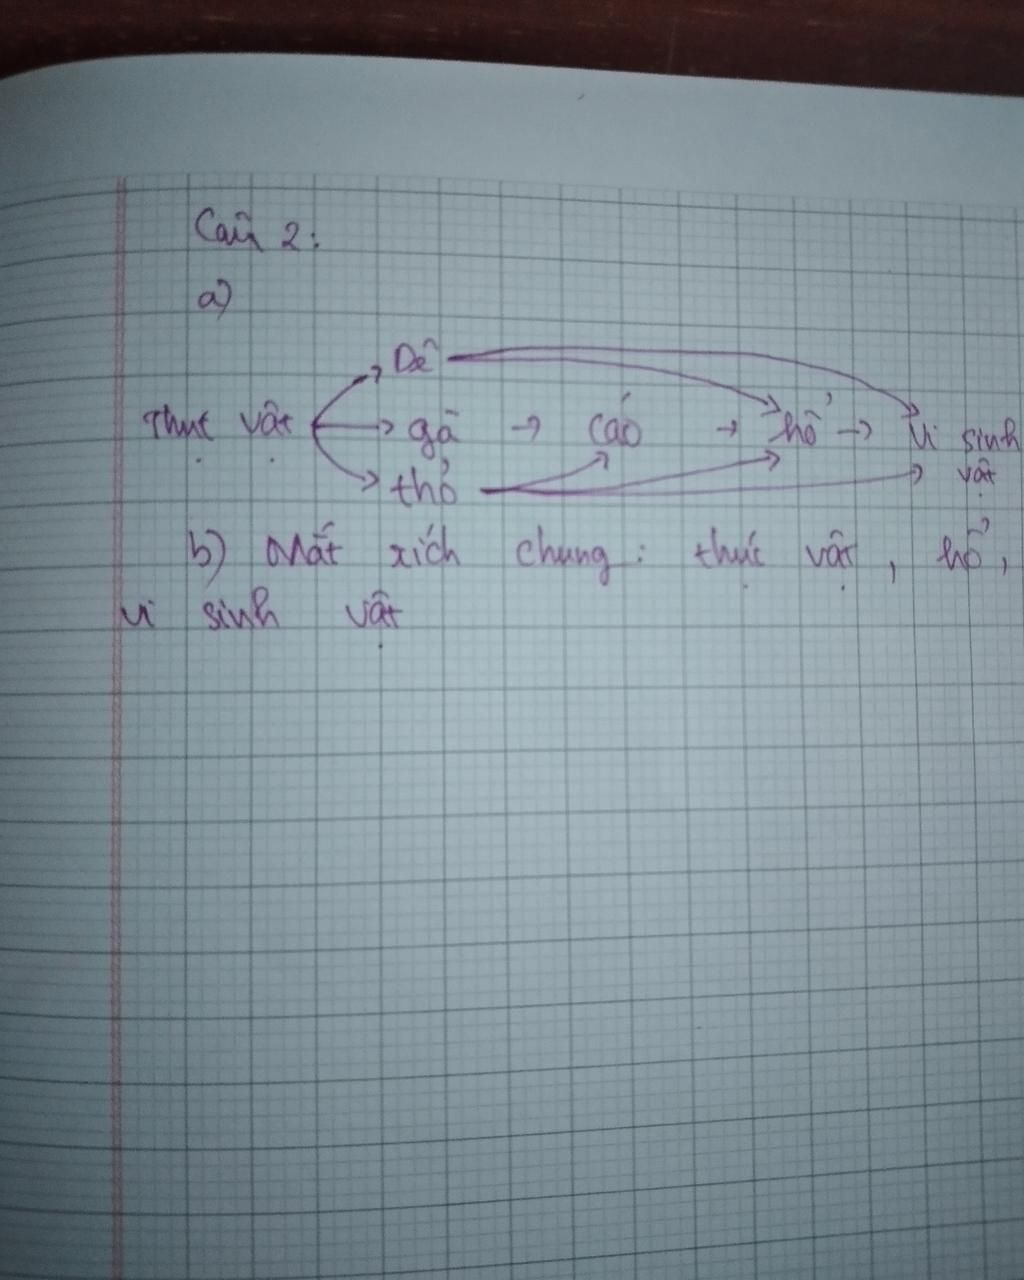 Câu 2:
a)
Dê
Thực vật → gà → cáo → hổ → vi sinh
thỏ vật
b) Mắt xích chung: thực vật, hổ,
vi sinh vật